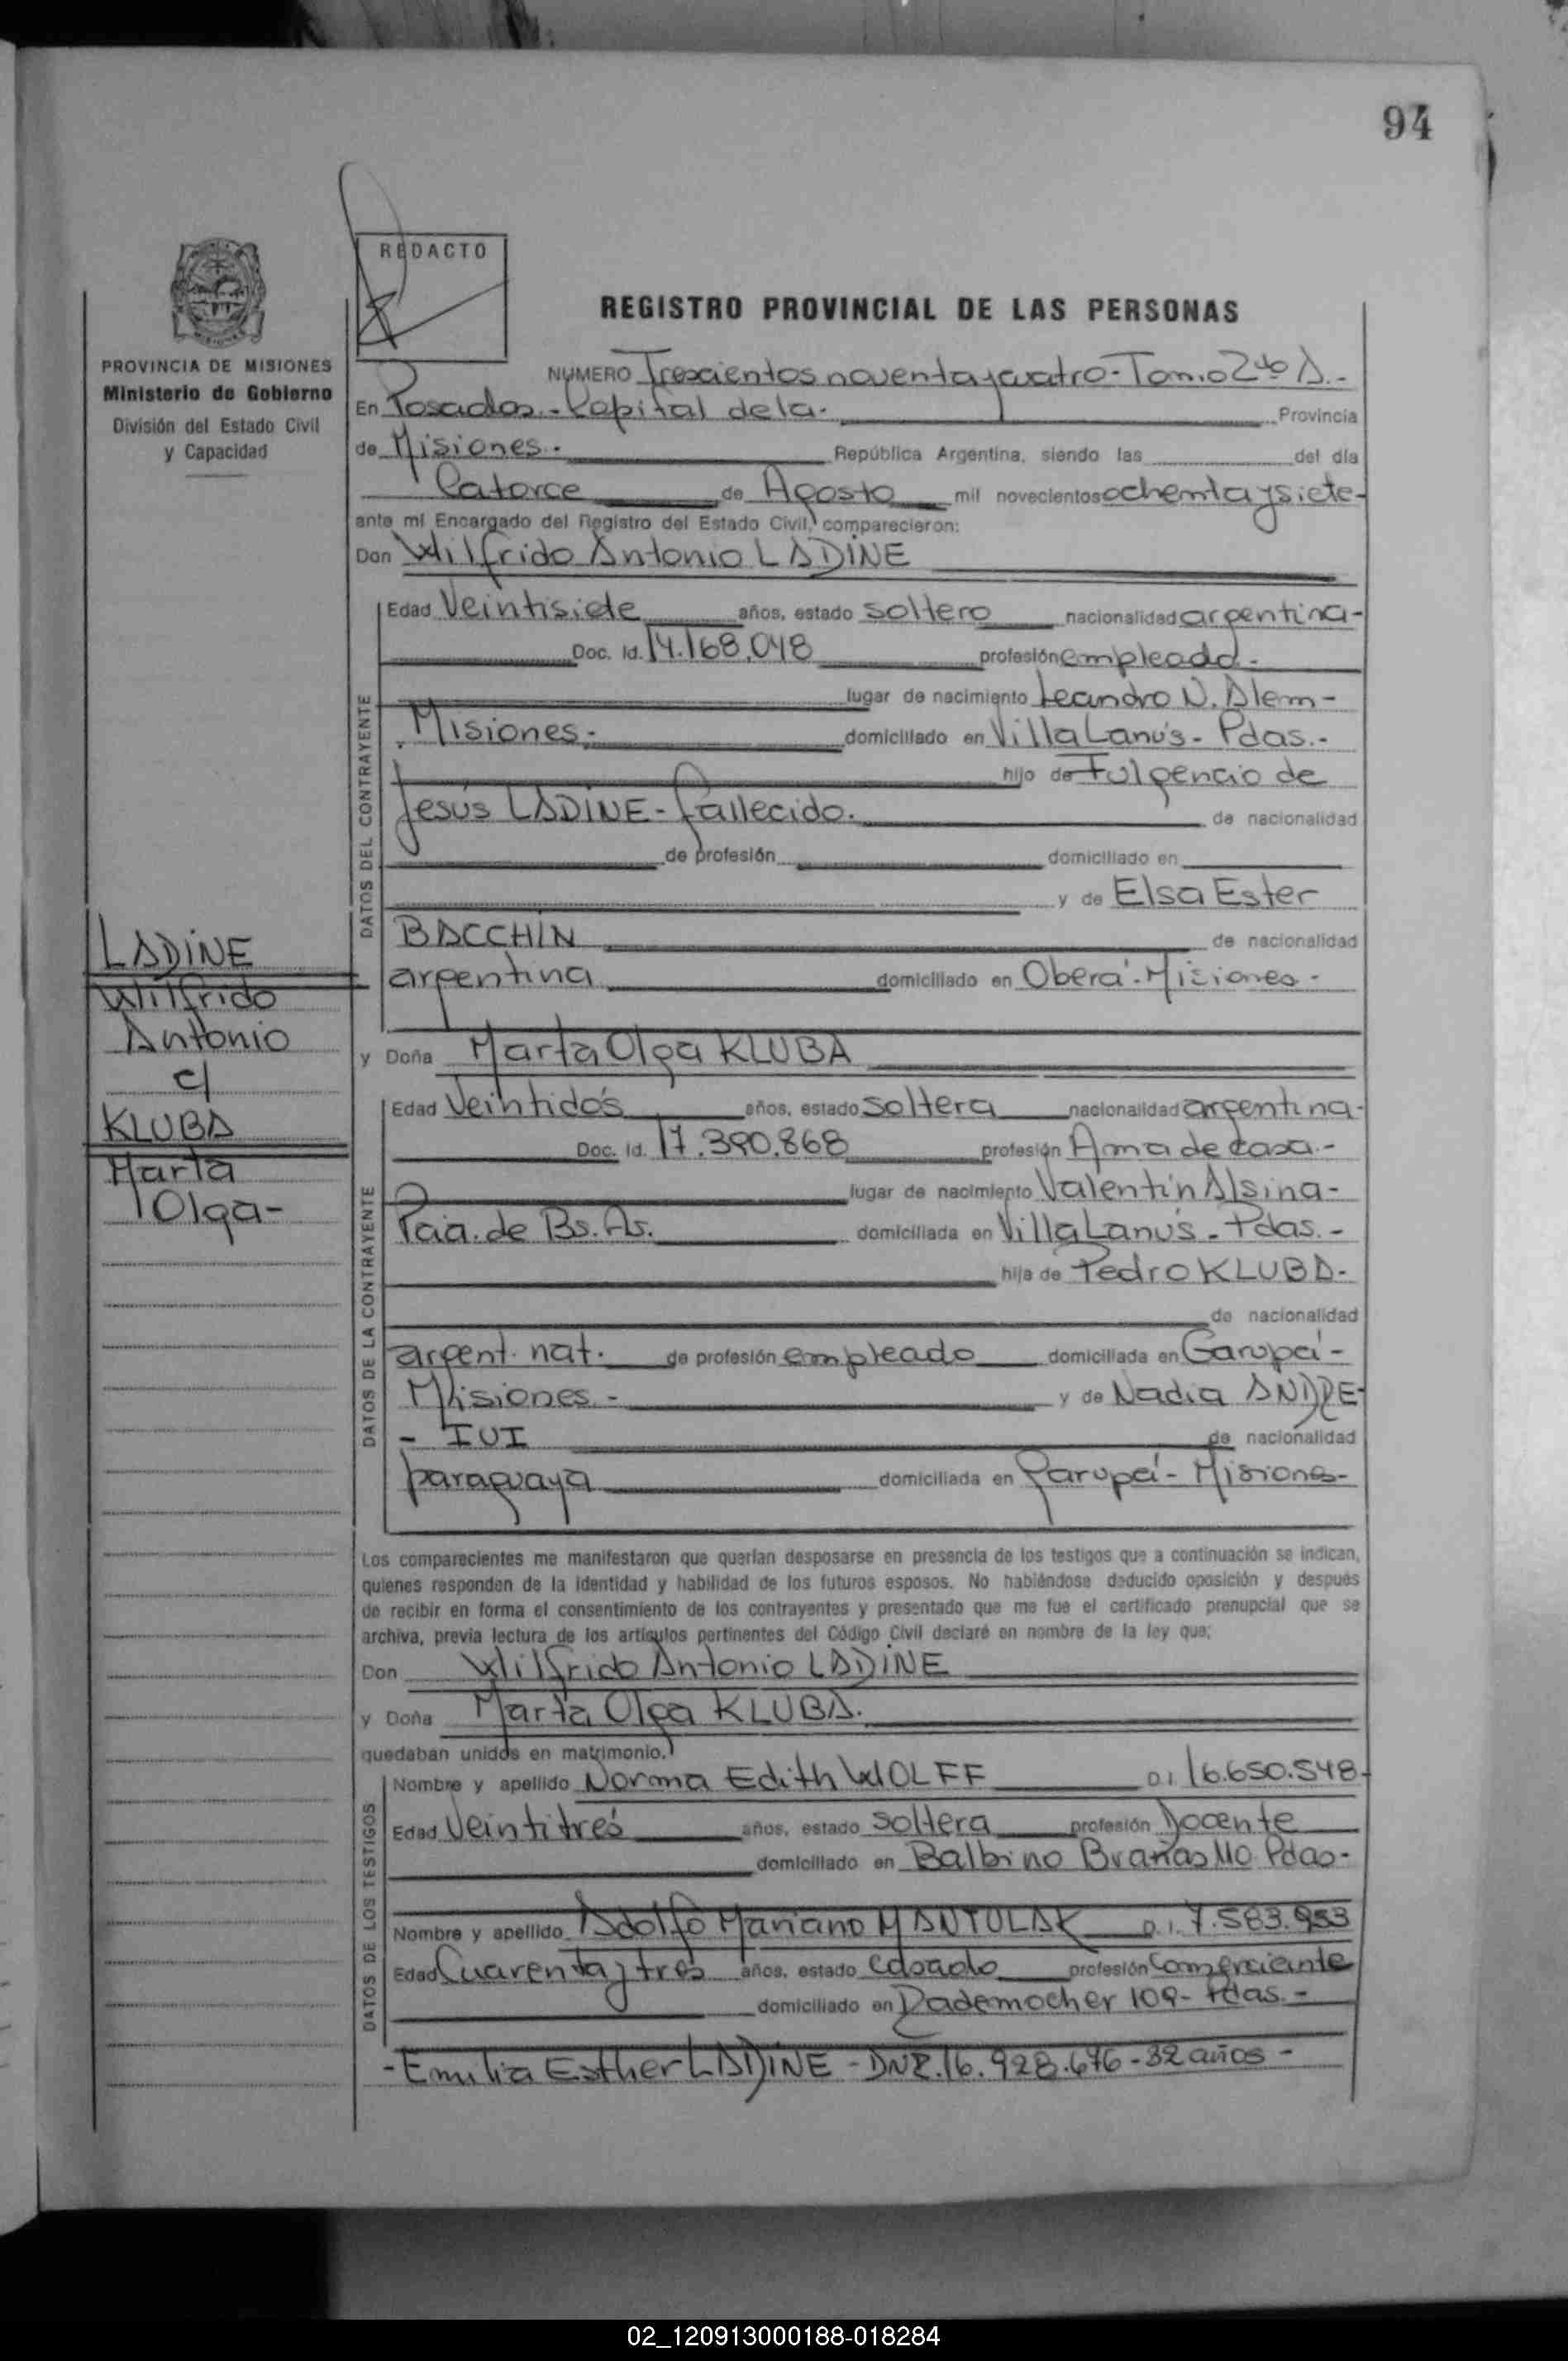 94
REDACTO
REGISTRO PROVINCIAL DE LAS PERSONAS
PROVINCIA DE MISIONES
Ministerio de Gobierno
División del Estado Civil
y Capacidad
NUMERO Trescientos noventa y cuatro - Tomo 2do A.-
En Posadas - Capital de la.- Provincia
de Misiones.- República Argentina, siendo las del día
Catorce de Agosto mil novecientos ochenta y siete-
ante mi Encargado del Registro del Estado Civil, comparecieron:
Don Wilfrido Antonio LADINE
DATOS DEL CONTRAYENTE
Edad Veintisiete años, estado soltero nacionalidad argentina-
Doc. Id. 14.168.048 profesión empleado.-
lugar de nacimiento Leandro N. Alem-
Misiones.- domiciliado en Villa Lanús - Pdas.-
hijo de Fulgencio de
Jesús LADINE - fallecido. de nacionalidad
de profesión domiciliado en
y de Elsa Ester
BACCHIN de nacionalidad
argentina domiciliado en Oberá - Misiones -
LADINE
Wilfrido
Antonio
c/
KLUBA
Marta
Olga-
y Doña Marta Olga KLUBA
DATOS DE LA CONTRAYENTE
Edad Veintidós años, estado soltera nacionalidad argentina-
Doc. Id. 17.390.868 profesión Ama de casa.-
lugar de nacimiento Valentín Alsina-
Pcia. de Bs. As. domiciliada en Villa Lanús - Pdas.-
hija de Pedro KLUBA-
de nacionalidad
argent. nat. de profesión empleado domiciliada en Garupá-
Misiones.- y de Nadia ANDRE-
- IUI de nacionalidad
paraguaya domiciliada en Garupá - Misiones-
Los comparecientes me manifestaron que querían desposarse en presencia de los testigos que a continuación se indican,
quienes responden de la identidad y habilidad de los futuros esposos. No habiéndose deducido oposición y después
de recibir en forma el consentimiento de los contrayentes y presentado que me fue el certificado prenupcial que se
archiva, previa lectura de los artículos pertinentes del Código Civil declaré en nombre de la ley que:
Don Wilfrido Antonio LADINE
y Doña Marta Olga KLUBA.
quedaban unidos en matrimonio.
DATOS DE LOS TESTIGOS
Nombre y apellido Norma Edith WOLFF D.I. 16.650.548-
Edad Veintitrés años, estado soltera profesión Docente
domiciliado en Balbino Brañas 110 Pdas-
Nombre y apellido Adolfo Mariano MANTULAK D.I. 7.583.953
Edad Cuarenta y tres años, estado casado profesión Comerciante
domiciliado en Rademacher 109 - Pdas.-
- Emilia Esther LADINE - DNI. 16.928.676 - 32 años -
02_120913000188-018284